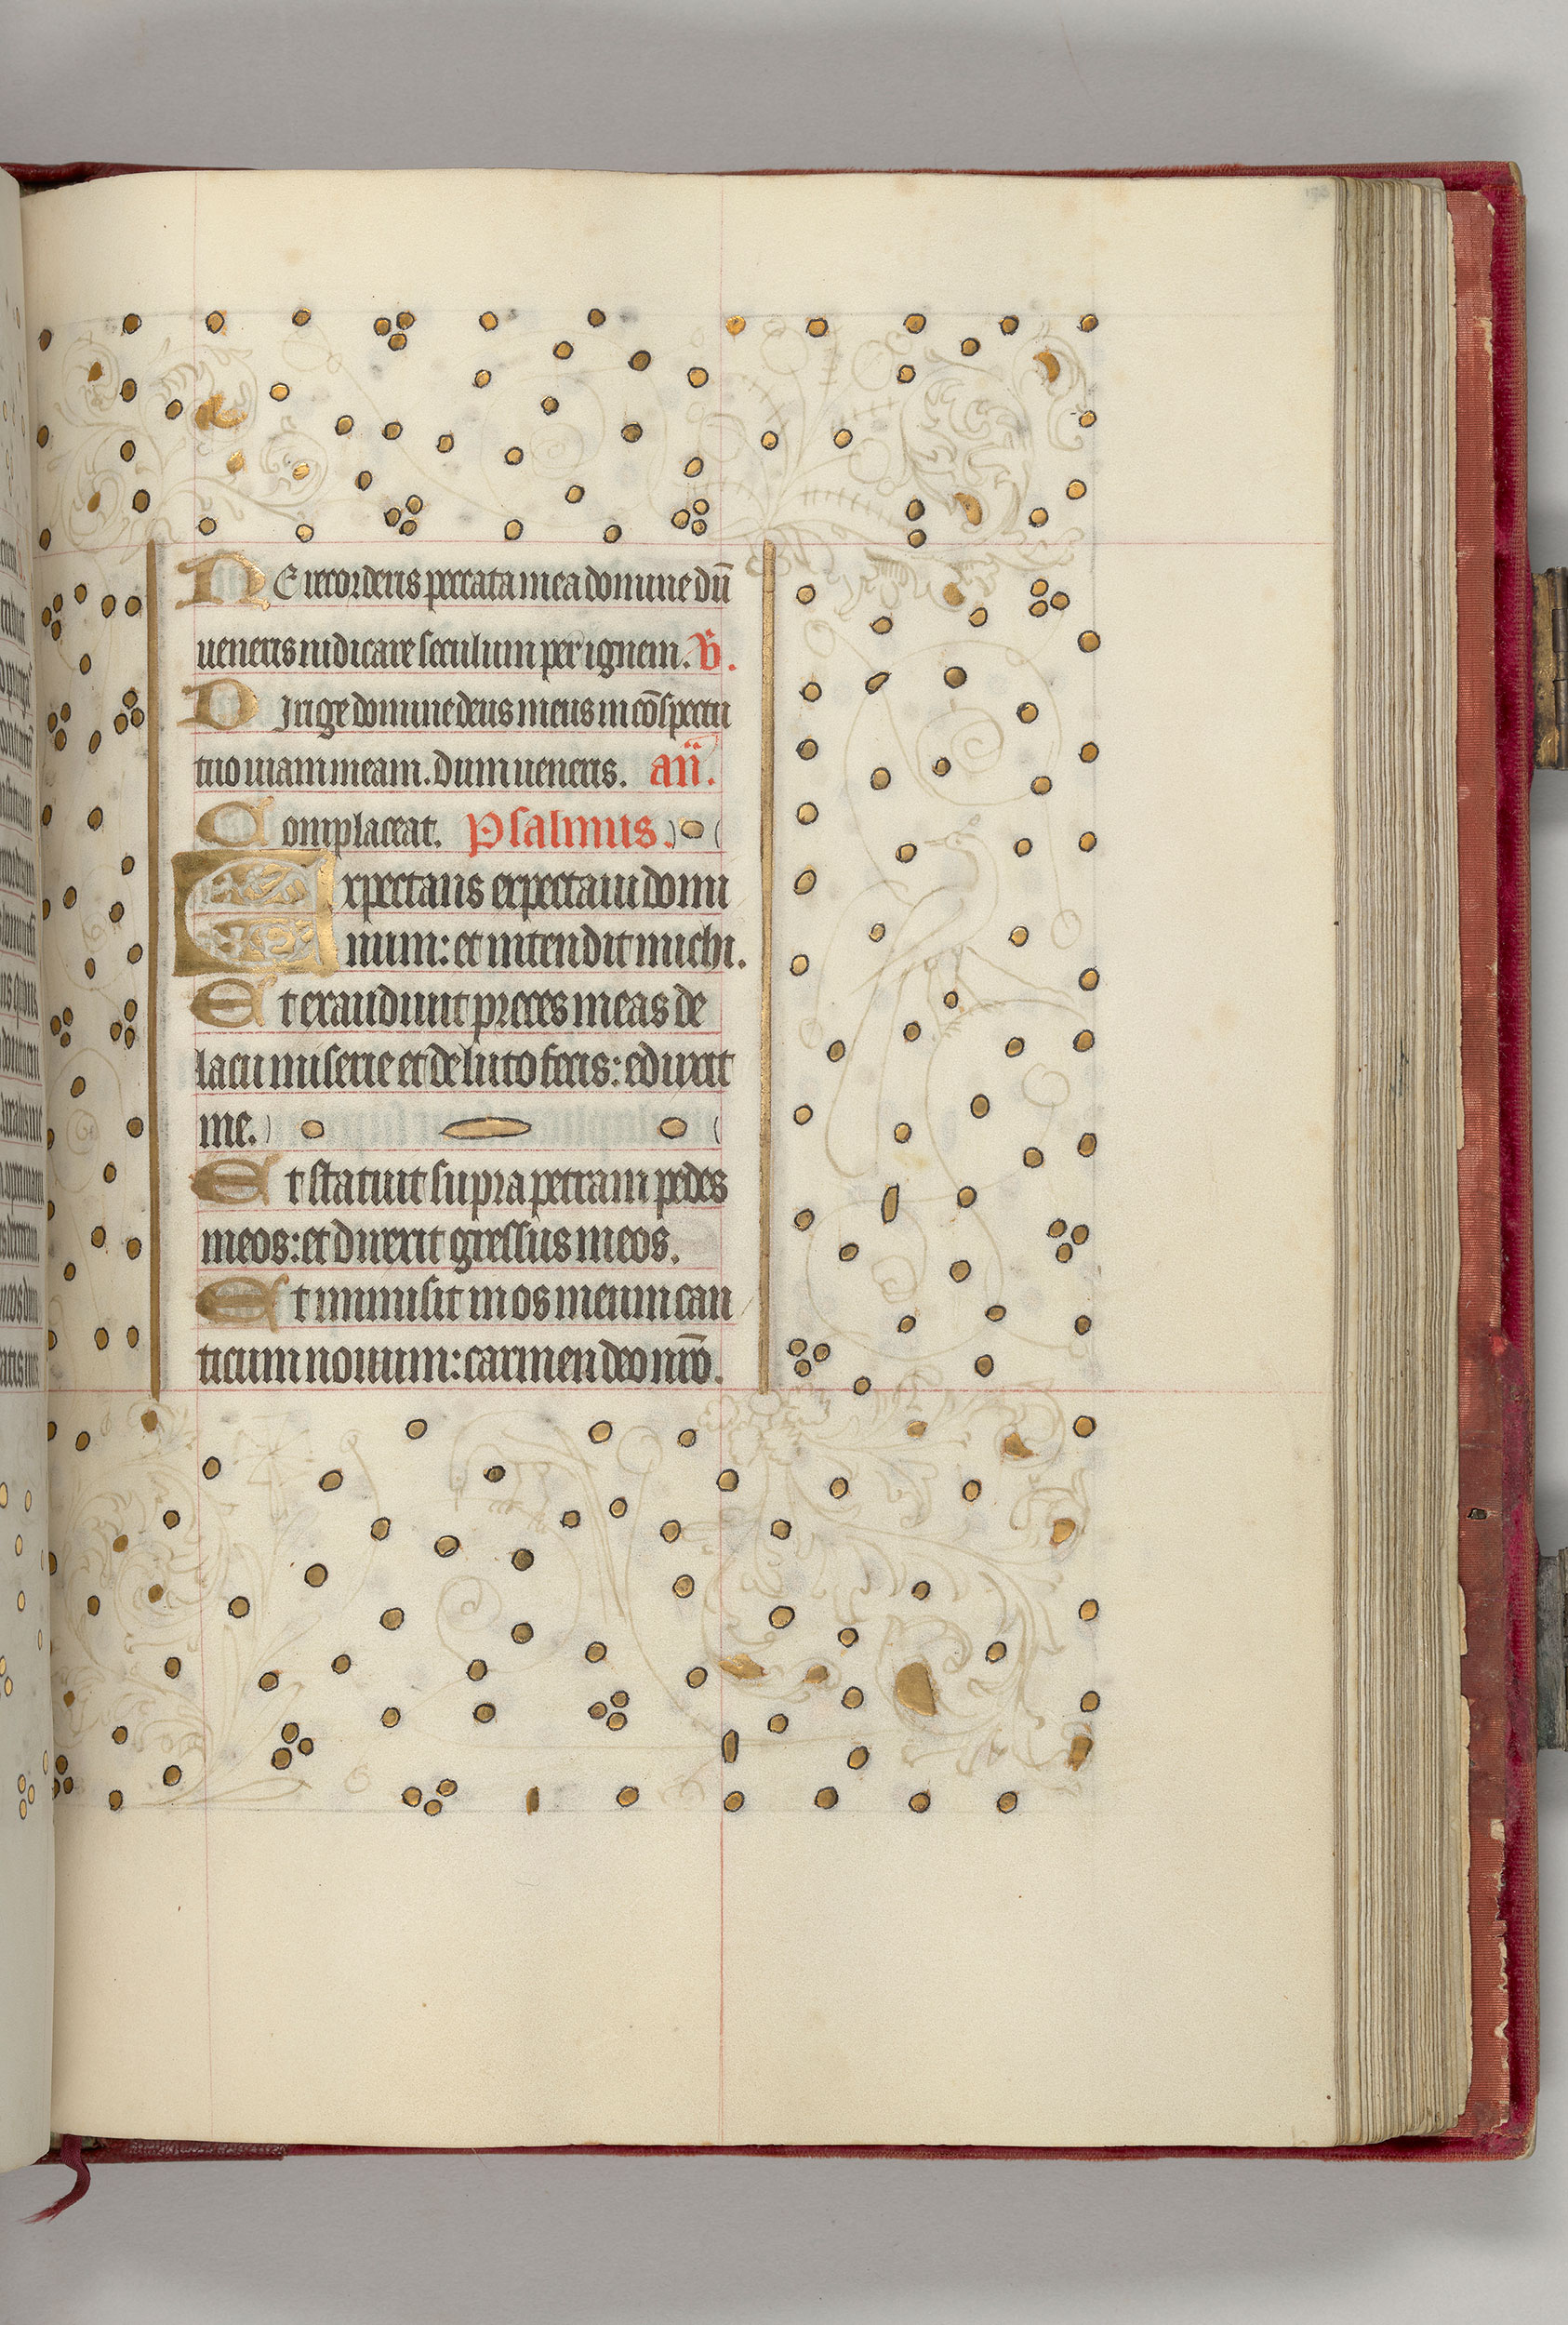 NE recorderis peccata mea domine dū
ueneris iudicare seculum per ignem. V.
Dirige domine deus meus in cōspectu
tuo uiam meam. Dum ueneris. añ.
Complaceat. Psalmus.
Expectans expectaui domi
num: et intendit michi.
Et exaudiuit preces meas de
lacu miserie et de luto fecis: eduxit
me.
Et statuit supra petram pedes
meos: et direxit gressus meos.
Et immisit in os meum can
ticum nouum: carmen deo nr̄o.